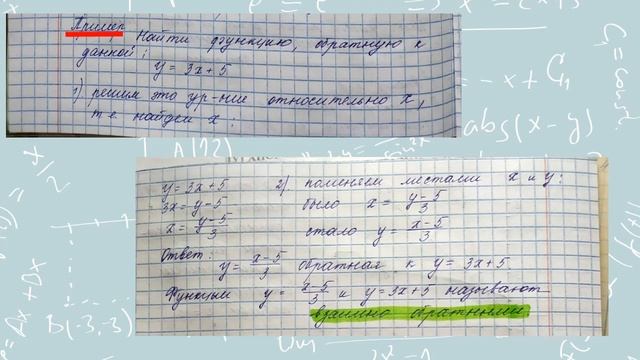 Пример Найти функцию, обратную к
данной:
y = 3x + 5
1) решим это ур-ние относительно x,
т.е. найдем x:
y = 3x + 5
3x = y - 5
x = \frac{y-5}{3}
2) поменяем местами x и y:
было x = \frac{y-5}{3}
стало y = \frac{x-5}{3}
Ответ:
y = \frac{x-5}{3} обратная к y = 3x + 5.
Функции y = \frac{x-5}{3} и y = 3x + 5 называют
взаимно обратными.
= -x + C₁
abs(x-y)
B(-3,-3)